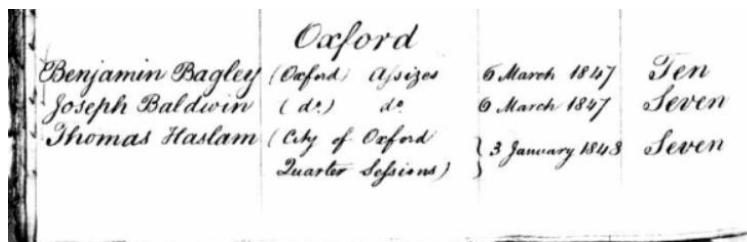 Oxford
Benjamin Bagley (Oxford) Assizes 6 March 1847 Ten
Joseph Baldwin (do.) do 6 March 1847 Seven
Thomas Haslam (City of Oxford Quarter Sessions) } 3 January 1848 Seven